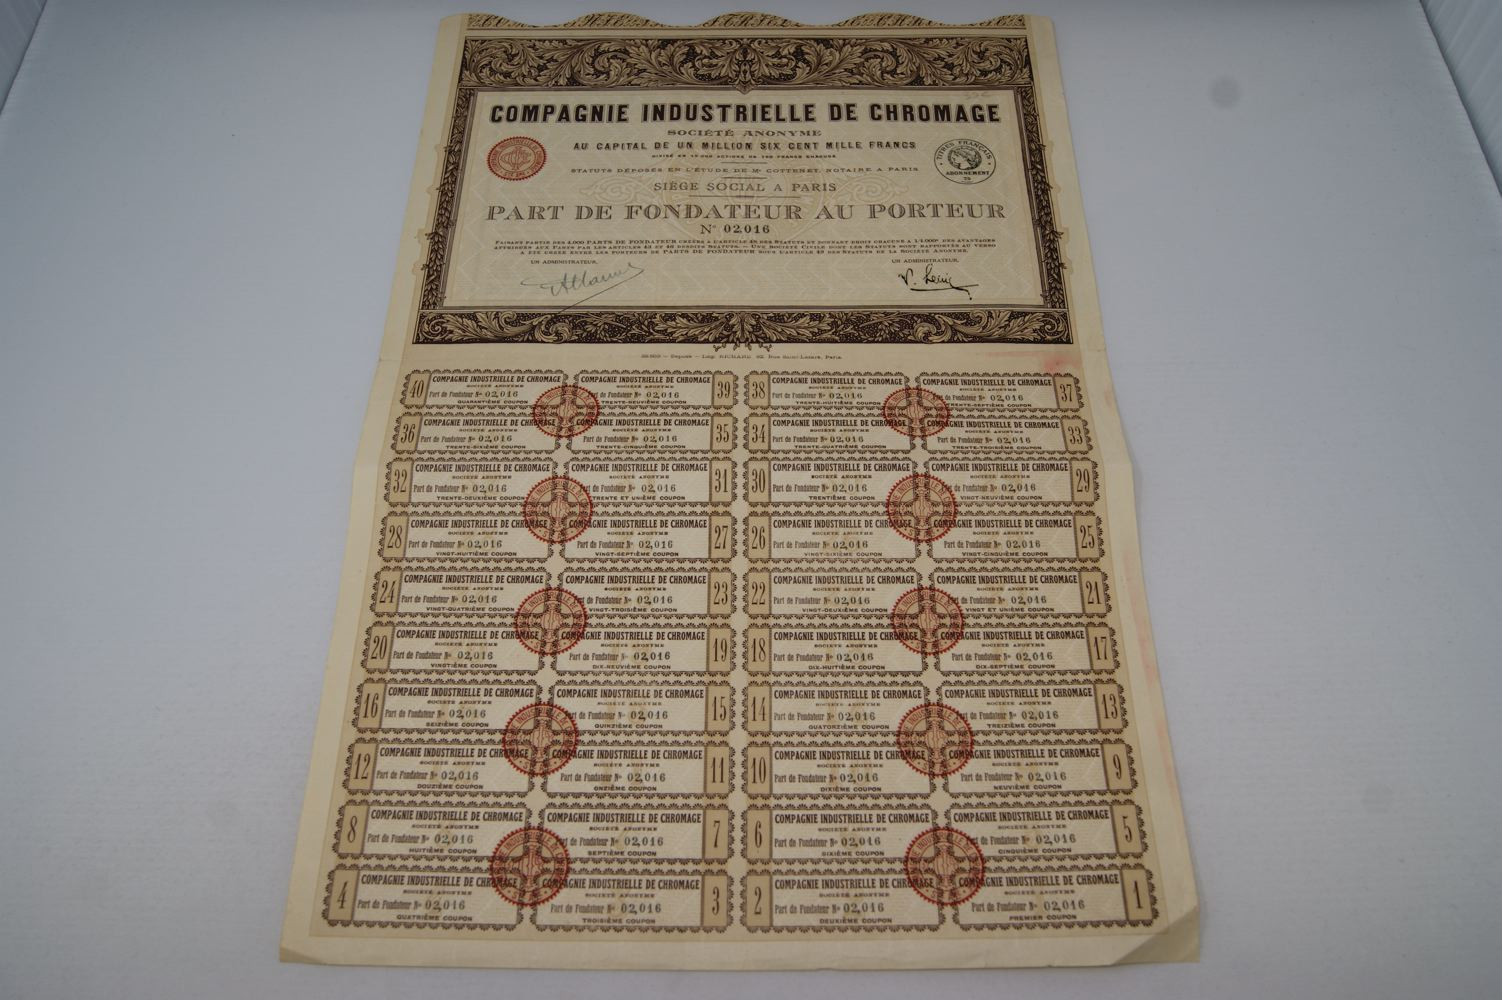 COMPAGNIE INDUSTRIELLE DE CHROMAGE
SOCIÉTÉ ANONYME
AU CAPITAL DE UN MILLION SIX CENT MILLE FRANCS
DIVISÉ EN 16.000 ACTIONS DE 100 FRANCS CHACUNE
STATUTS DÉPOSÉS EN L'ÉTUDE DE Mᵉ COTTENET, NOTAIRE A PARIS
TITRES FRANÇAIS
ABONNEMENT
SIÈGE SOCIAL A PARIS
PART DE FONDATEUR AU PORTEUR
N° 02,016
FAISANT PARTIE DES 4.000 PARTS DE FONDATEUR CRÉÉES A L'ARTICLE 48 DES STATUTS ET DONNANT DROIT CHACUNE A 1/4.000ᵉ DES AVANTAGES
ATTRIBUÉS AUX PARTS PAR LES ARTICLES 43 ET 46 DESDITS STATUTS. — UNE SOCIÉTÉ CIVILE DONT LES STATUTS SONT RAPPORTÉS AU VERSO
A ÉTÉ CRÉÉE ENTRE LES PORTEURS DE PARTS DE FONDATEUR SOUS L'ARTICLE 49 DES STATUTS DE LA SOCIÉTÉ ANONYME.
UN ADMINISTRATEUR, UN ADMINISTRATEUR,
Déposé — Imp. RICHARD 92 Rue Saint-Lazare, Paris
40 COMPAGNIE INDUSTRIELLE DE CHROMAGE COMPAGNIE INDUSTRIELLE DE CHROMAGE 39 38 COMPAGNIE INDUSTRIELLE DE CHROMAGE COMPAGNIE INDUSTRIELLE DE CHROMAGE 37
SOCIÉTÉ ANONYME SOCIÉTÉ ANONYME SOCIÉTÉ ANONYME SOCIÉTÉ ANONYME
Part de Fondateur N° 02,016 Part de Fondateur N° 02,016 Part de Fondateur N° 02,016 Part de Fondateur N° 02,016
QUARANTIÈME COUPON TRENTE-NEUVIÈME COUPON TRENTE-HUITIÈME COUPON TRENTE-SEPTIÈME COUPON
36 COMPAGNIE INDUSTRIELLE DE CHROMAGE COMPAGNIE INDUSTRIELLE DE CHROMAGE 35 34 COMPAGNIE INDUSTRIELLE DE CHROMAGE COMPAGNIE INDUSTRIELLE DE CHROMAGE 33
SOCIÉTÉ ANONYME SOCIÉTÉ ANONYME SOCIÉTÉ ANONYME SOCIÉTÉ ANONYME
Part de Fondateur N° 02,016 Part de Fondateur N° 02,016 Part de Fondateur N° 02,016 Part de Fondateur N° 02,016
TRENTE-SIXIÈME COUPON TRENTE-CINQUIÈME COUPON TRENTE-QUATRIÈME COUPON TRENTE-TROISIÈME COUPON
32 COMPAGNIE INDUSTRIELLE DE CHROMAGE COMPAGNIE INDUSTRIELLE DE CHROMAGE 31 30 COMPAGNIE INDUSTRIELLE DE CHROMAGE COMPAGNIE INDUSTRIELLE DE CHROMAGE 29
SOCIÉTÉ ANONYME SOCIÉTÉ ANONYME SOCIÉTÉ ANONYME SOCIÉTÉ ANONYME
Part de Fondateur N° 02,016 Part de Fondateur N° 02,016 Part de Fondateur N° 02,016 Part de Fondateur N° 02,016
TRENTE-DEUXIÈME COUPON TRENTE ET UNIÈME COUPON TRENTIÈME COUPON VINGT-NEUVIÈME COUPON
28 COMPAGNIE INDUSTRIELLE DE CHROMAGE COMPAGNIE INDUSTRIELLE DE CHROMAGE 27 26 COMPAGNIE INDUSTRIELLE DE CHROMAGE COMPAGNIE INDUSTRIELLE DE CHROMAGE 25
SOCIÉTÉ ANONYME SOCIÉTÉ ANONYME SOCIÉTÉ ANONYME SOCIÉTÉ ANONYME
Part de Fondateur N° 02,016 Part de Fondateur N° 02,016 Part de Fondateur N° 02,016 Part de Fondateur N° 02,016
VINGT-HUITIÈME COUPON VINGT-SEPTIÈME COUPON VINGT-SIXIÈME COUPON VINGT-CINQUIÈME COUPON
24 COMPAGNIE INDUSTRIELLE DE CHROMAGE COMPAGNIE INDUSTRIELLE DE CHROMAGE 23 22 COMPAGNIE INDUSTRIELLE DE CHROMAGE COMPAGNIE INDUSTRIELLE DE CHROMAGE 21
SOCIÉTÉ ANONYME SOCIÉTÉ ANONYME SOCIÉTÉ ANONYME SOCIÉTÉ ANONYME
Part de Fondateur N° 02,016 Part de Fondateur N° 02,016 Part de Fondateur N° 02,016 Part de Fondateur N° 02,016
VINGT-QUATRIÈME COUPON VINGT-TROISIÈME COUPON VINGT-DEUXIÈME COUPON VINGT ET UNIÈME COUPON
20 COMPAGNIE INDUSTRIELLE DE CHROMAGE COMPAGNIE INDUSTRIELLE DE CHROMAGE 19 18 COMPAGNIE INDUSTRIELLE DE CHROMAGE COMPAGNIE INDUSTRIELLE DE CHROMAGE 17
SOCIÉTÉ ANONYME SOCIÉTÉ ANONYME SOCIÉTÉ ANONYME SOCIÉTÉ ANONYME
Part de Fondateur N° 02,016 Part de Fondateur N° 02,016 Part de Fondateur N° 02,016 Part de Fondateur N° 02,016
VINGTIÈME COUPON DIX-NEUVIÈME COUPON DIX-HUITIÈME COUPON DIX-SEPTIÈME COUPON
16 COMPAGNIE INDUSTRIELLE DE CHROMAGE COMPAGNIE INDUSTRIELLE DE CHROMAGE 15 14 COMPAGNIE INDUSTRIELLE DE CHROMAGE COMPAGNIE INDUSTRIELLE DE CHROMAGE 13
SOCIÉTÉ ANONYME SOCIÉTÉ ANONYME SOCIÉTÉ ANONYME SOCIÉTÉ ANONYME
Part de Fondateur N° 02,016 Part de Fondateur N° 02,016 Part de Fondateur N° 02,016 Part de Fondateur N° 02,016
SEIZIÈME COUPON QUINZIÈME COUPON QUATORZIÈME COUPON TREIZIÈME COUPON
12 COMPAGNIE INDUSTRIELLE DE CHROMAGE COMPAGNIE INDUSTRIELLE DE CHROMAGE 11 10 COMPAGNIE INDUSTRIELLE DE CHROMAGE COMPAGNIE INDUSTRIELLE DE CHROMAGE 9
SOCIÉTÉ ANONYME SOCIÉTÉ ANONYME SOCIÉTÉ ANONYME SOCIÉTÉ ANONYME
Part de Fondateur N° 02,016 Part de Fondateur N° 02,016 Part de Fondateur N° 02,016 Part de Fondateur N° 02,016
DOUZIÈME COUPON ONZIÈME COUPON DIXIÈME COUPON NEUVIÈME COUPON
8 COMPAGNIE INDUSTRIELLE DE CHROMAGE COMPAGNIE INDUSTRIELLE DE CHROMAGE 7 6 COMPAGNIE INDUSTRIELLE DE CHROMAGE COMPAGNIE INDUSTRIELLE DE CHROMAGE 5
SOCIÉTÉ ANONYME SOCIÉTÉ ANONYME SOCIÉTÉ ANONYME SOCIÉTÉ ANONYME
Part de Fondateur N° 02,016 Part de Fondateur N° 02,016 Part de Fondateur N° 02,016 Part de Fondateur N° 02,016
HUITIÈME COUPON SEPTIÈME COUPON SIXIÈME COUPON CINQUIÈME COUPON
4 COMPAGNIE INDUSTRIELLE DE CHROMAGE COMPAGNIE INDUSTRIELLE DE CHROMAGE 3 2 COMPAGNIE INDUSTRIELLE DE CHROMAGE COMPAGNIE INDUSTRIELLE DE CHROMAGE 1
SOCIÉTÉ ANONYME SOCIÉTÉ ANONYME SOCIÉTÉ ANONYME SOCIÉTÉ ANONYME
Part de Fondateur N° 02,016 Part de Fondateur N° 02,016 Part de Fondateur N° 02,016 Part de Fondateur N° 02,016
QUATRIÈME COUPON TROISIÈME COUPON DEUXIÈME COUPON PREMIER COUPON